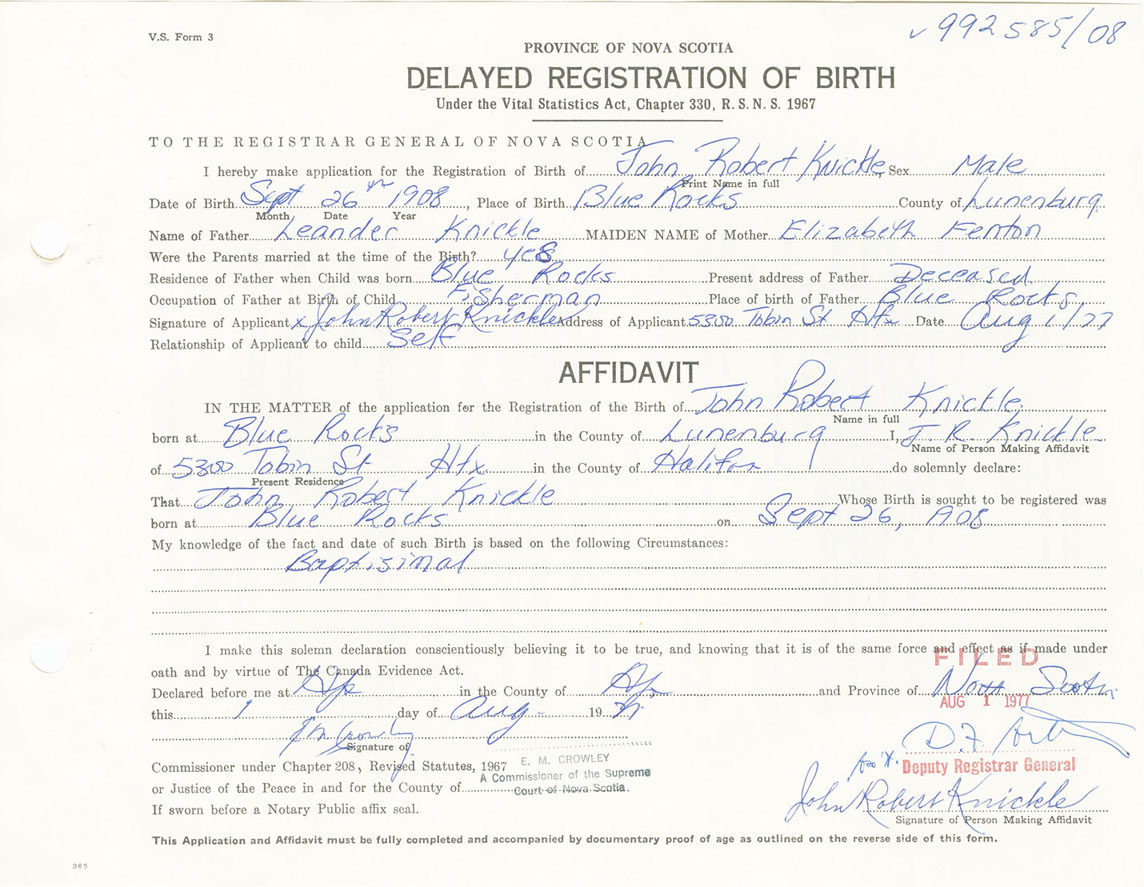 V.S. Form 3
992585/08
PROVINCE OF NOVA SCOTIA
DELAYED REGISTRATION OF BIRTH
Under the Vital Statistics Act, Chapter 330, R.S.N.S. 1967
TO THE REGISTRAR GENERAL OF NOVA SCOTIA
I hereby make application for the Registration of Birth of John Robert Knickle Sex Male
Print Name in full
Date of Birth Sept 26th 1908, Place of Birth Blue Rocks County of Lunenburg
Month Date Year
Name of Father Leander Knickle MAIDEN NAME of Mother Elizabeth Fenton
Were the Parents married at the time of the Birth? yes
Residence of Father when Child was born Blue Rocks Present address of Father Deceased
Occupation of Father at Birth of Child Fisherman Place of birth of Father Blue Rocks,
Signature of Applicant x John Robert Knickle Address of Applicant 5300 Tobin St Hfx Date Aug 1/77
Relationship of Applicant to child Self
AFFIDAVIT
IN THE MATTER of the application for the Registration of the Birth of John Robert Knickle
Name in full
born at Blue Rocks in the County of Lunenburg I, J. R. Knickle
Name of Person Making Affidavit
of 5300 Tobin St Hfx in the County of Halifax do solemnly declare:
Present Residence
That John Robert Knickle Whose Birth is sought to be registered was
born at Blue Rocks on Sept 26, 1908
My knowledge of the fact and date of such Birth is based on the following Circumstances:
Baptisimal
I make this solemn declaration conscientiously believing it to be true, and knowing that it is of the same force and effect as if made under
FILED
oath and by virtue of The Canada Evidence Act.
Declared before me at Hfx in the County of Hfx and Province of Nova Scotia
AUG 1 1977
this 1 day of Aug 19 77
E M Crowley
Signature of
D.F.
Commissioner under Chapter 208, Revised Statutes, 1967
E. M. CROWLEY
A Commissioner of the Supreme
Court of Nova Scotia.
Deputy Registrar General
or Justice of the Peace in and for the County of
John Robert Knickle
If sworn before a Notary Public affix seal.
Signature of Person Making Affidavit
This Application and Affidavit must be fully completed and accompanied by documentary proof of age as outlined on the reverse side of this form.
385